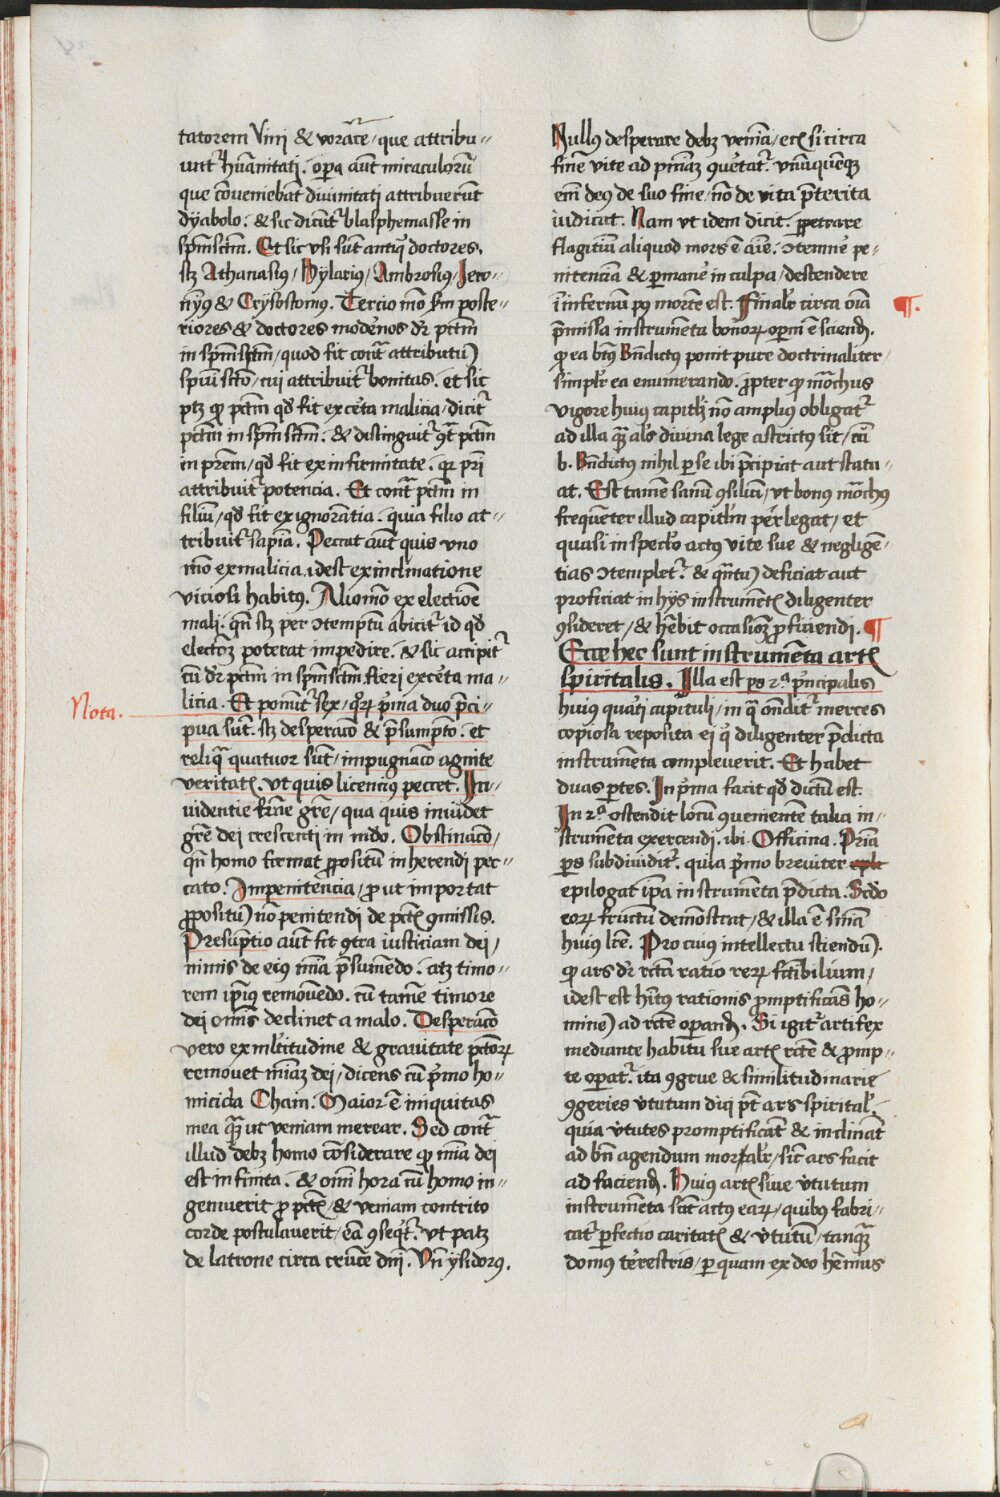 tatorem vini & vorace / que attribu〃
unt᷑ hūanitati . oꝑa aut̄ miraculorū
que cōueniebāt diuinitati attribuerūt
dyabolo . & sic dicūt᷑ blasphemasse in
sp̄m sctm̄ . Et sic vsi sūt antiqͥ doctores .
sꝫ Athanasiꝰ / Hylariꝰ / Ambrosiꝰ / Jero〃
nimꝰ & Crysostomꝰ . Tercio mō scd̄m poste〃
riores & doctores modernos dr̄ pctm̄
in sp̄m sctm̄ / quod fit cont᷑ attributū
spūi scto / cui attribuit᷑ bonitas . et sic
ptꝫ ꝙ pctm̄ qd̄ fit ex certa malicia / dicit᷑
pctm̄ in sp̄m sctm̄ . & distinguit᷑ 9t᷑ pctm̄
in prēm / qd̄ fit ex infirmitate . qꝛ pri̅
attribuit᷑ potencia . Et cont᷑ pctm̄ in
filiū / qd̄ fit ex ignorātia . quia filio at〃
tribuit᷑ sapiā . Peccat aūt quis vno
mō ex malicia idest ex inclinatione
viciosi habitꝰ . Alio mō ex electiōe
mali . qn̄ sꝫ per ↄtemptū abicit᷑ id qd̄
electōꝫ poterat impedire . & sic accipit᷑
cū dr̄ pctm̄ in sp̄m sctm̄ fieri ex certa ma〃
licia . Et ponūt᷑ sex / qꝛꝝ pͥma duo p̄ci〃
Nota .
pua sūt . sꝫ desperacō & p̄sumpto . et
reliqᷓ quatuor sūt / impugnacō agnite
veritatꝭ . vt quis licenciꝰ peccet . In〃
uidentie frn̄e grē / qua quis inuidet
grē dei crescenti in mūdo . Obstinacō /
qn̄ homo firmat ꝓpositū inherendi pec〃
cato . Impenitencia / ꝓut importat
ꝓpositū nō penitendi de pctꝭ 9missis .
Presūptio aūt fit 9tra iusticiam dei /
nimis de eiꝰ mīa p̄sumēdo . atꝫ timo〃
rem ip̄iꝰ remouēdo . cū tamē timore
dei omīs declinet a malo . Desperacō
vero ex ml̄titudine & grauitate pctōꝝ
remouet mīaꝫ dei / dicens cū pͥmo ho〃
micida Chain . Maior ē iniquitas
mea qᷓꝫ ut veniam merear . Sed cont᷑
illud debꝫ homo cōsiderare ꝙ mīa dei
est infinita . & omi̅ hora cū homo in〃
gemuerit ꝓ pctꝭ / & veniam contrito
corde postulauerit / eā 9seqt᷑ . vt patꝫ
de latrone circa crucē dn̄i . Vn̄ ysidorꝰ .
Nullꝰ desperare debꝫ veniā / eciā si circa
finē vite ad pn̄iaꝫ 9u͛tat᷑ . vnūquēqꝫ
em̄ deꝰ de suo fine / nō de vita p̄terita
iudicat . Nam vt idem dicit . ꝑpetrare
flagitiū aliquod mors ē aīe . ↄtemne͛ pe〃
nitenciā & ꝑmane͛ in culpa / descendere
ī infernū pꝰ mortē est . Finalr̄ circa oīa ¶ .
p̄missa instrumēta bonoꝝ opm̄ ē sciend̄ .
ꝙ ea btꝰ Bn̄dictꝰ ponit pure doctrinaliter /
simplr̄ ea enumerando . ꝓpter qd̄ mōchus
vigore huiꝰ capitli̅ nō ampliꝰ obligat᷑
ad illa qᷓꝫ als̄ diuina lege astrictꝰ sit / cū
b . Bn̄dictꝰ nihil per se ibi p̄cipiat aut statu〃
at . Est tamē sanū 9siliū / vt bonꝰ mōchꝰ
frequēter illud capitlm̄ perlegat / et
quasi in speclo̅ actꝰ vite sue & negligē〃
tias ↄtemplet᷑ . & qn̄tū deficiat aut
proficiat in hys instrumētꝭ diligenter
9sideret / & hēbit occasiōꝫ ꝓficiendi . ¶
Ecce hec sunt instrumēta artꝭ
spiritalis . Illa est ps̄ 2ᵃ pͥncipalis
huiꝰ quarti capituli / in qᷓ on̄dit᷑ merces
copiosa reposita ei qͥ diligenter p̄dicta
instrumēta compleuerit . Et habet
duas ptes . In pͥma facit qd̄ dictū est .
In 2ᵃ ostendit locū 9uenientē talia in〃
strumēta exercendi . ibi Officina . Pri̅a
ps̄ subdiuidit᷑ . quia pͥmo breuiter
epilogat ip̄a instrumēta p̄dicta . Scd̄o
eoꝝ fructū demōstrat / & illa ē sm̄a
huiꝰ lrē . Pro cuiꝰ intellectu sciendū .
ꝙ ars dr̄ rcta̅ ratio reꝝ fctībilium /
idest est hītꝰ rationis ꝓmptificās ho〃
minē ad rctē operand̄ . Si igit᷑ artifex
mediante habitu sue artꝭ rctē & promp〃
te operat᷑ . ita 9grue & similitudinarie
9geries v͛tutum dici pt̄ ars spiritalꝭ .
quia v͛tutes promptificāt & inclināt
ad bn̄ agendum moralr̄ / sict̄ ars facit
ad faciend̄ . Huiꝰ artꝭ siue v͛tutum
instrumēta sūt actꝰ eaꝝ / quibꝰ fabri〃
cat᷑ ꝑfectio caritatꝭ & v͛tutū / tanqᷓꝫ
domꝰ terrestris / per quam ex deo hēmus